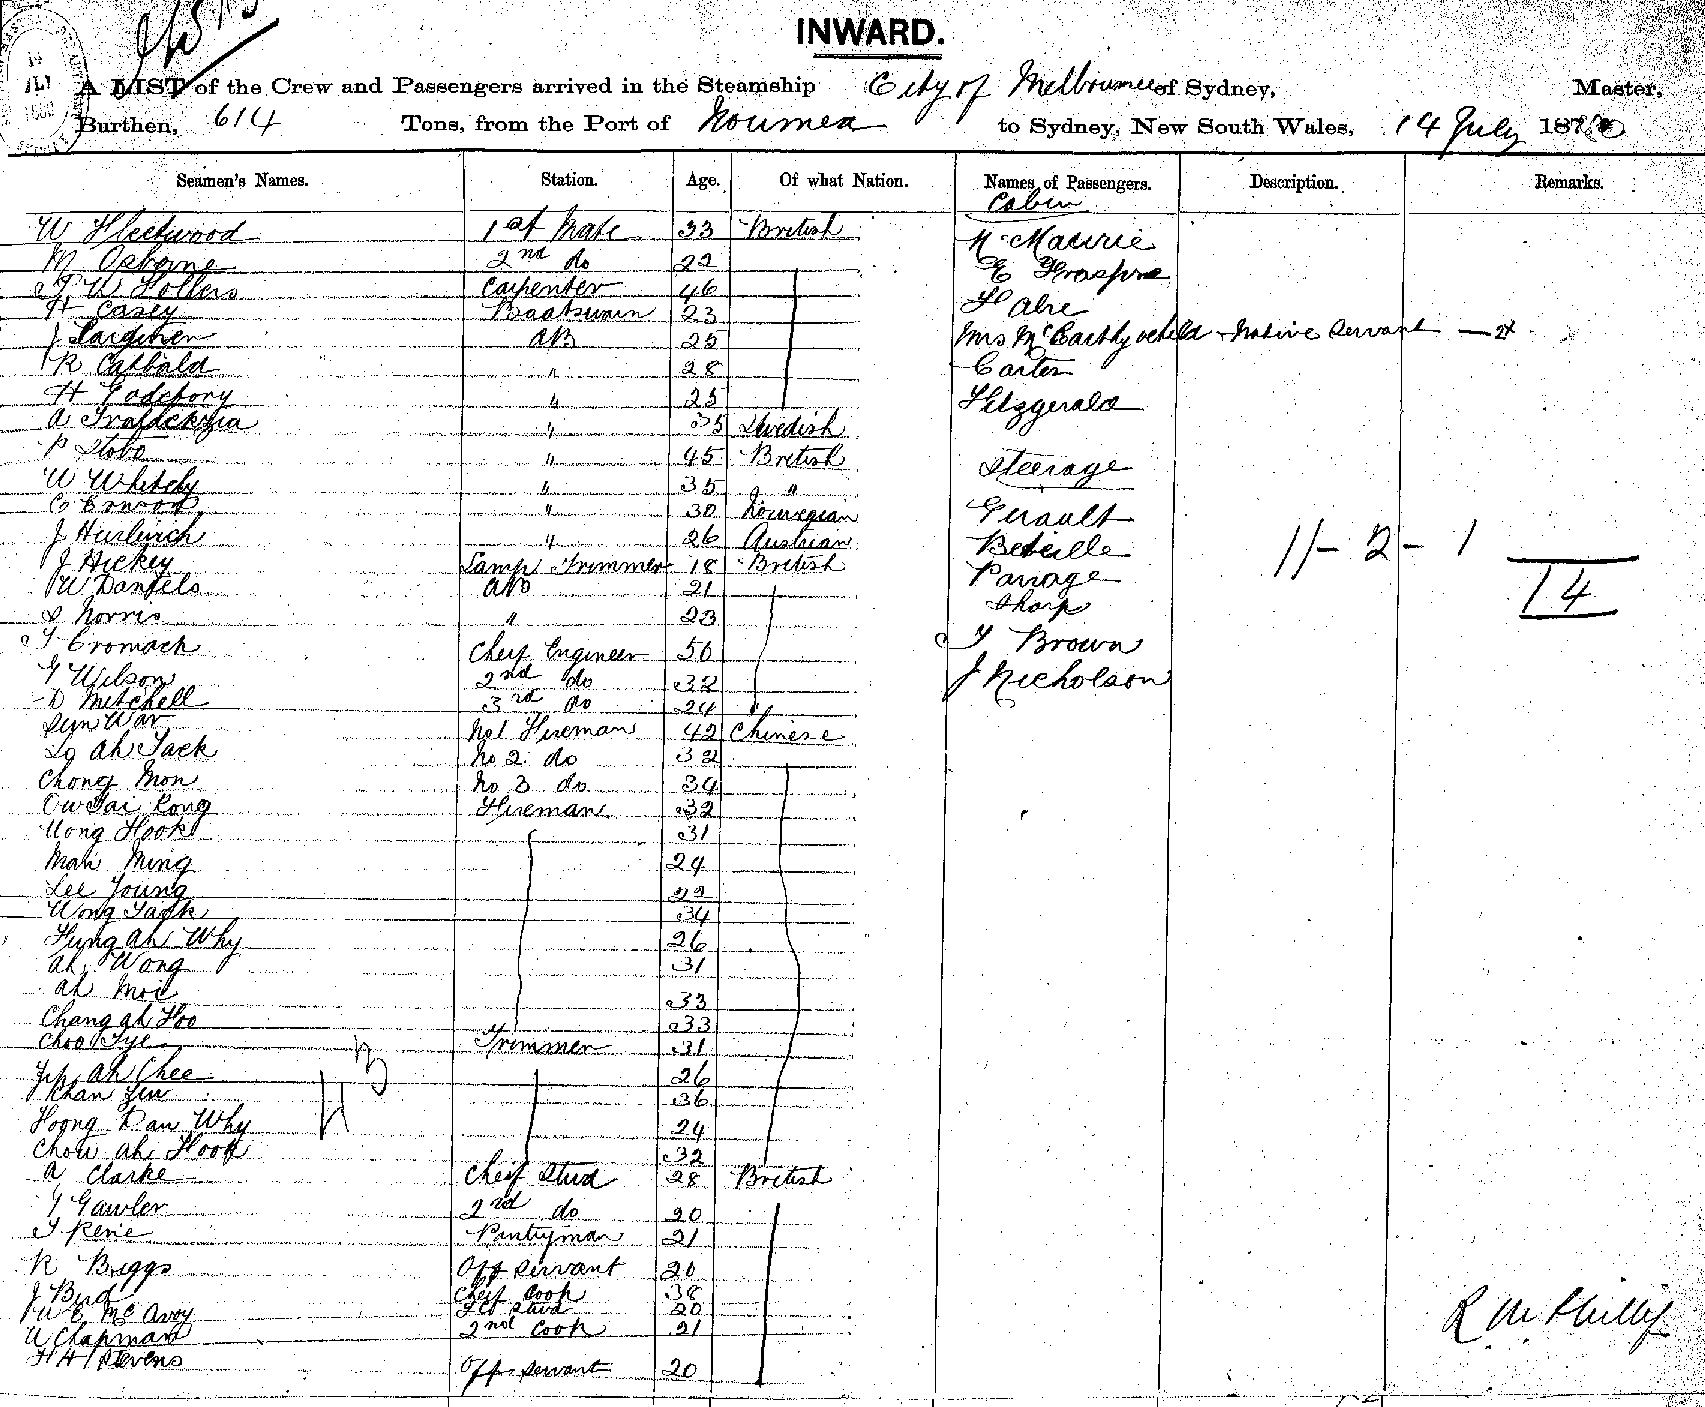 INWARD.
A LIST of the Crew and Passengers arrived in the Steamship City of Melbourne of Sydney, Master,
Burthen, 614 Tons, from the Port of Noumea to Sydney, New South Wales, 14 July 18
Seamen's Names. Station. Age. Of what Nation. Names of Passengers. Description. Remarks.
Cabin
W Fleetwood 1st Mate 33 British
Mc Maurie
M Osborne 2nd do 22
E
J W Follers Carpenter 46
H Casey Boatswain 23
J AB 25
Mrs McCarthy & child & Native Servant — 2
R Catbald " 28
Carter
H " 25
Fitzgerald
A " 35 Swedish
P Stobo " 45 British
Steerage
W Whitely " 35 "
C " 30 Norwegian
Girault
J " 26 Austrian
Beteille
11 - 2 - 1
14
J Hickey Lamp Trimmer 18 British
Parrage
W Daniels AB 21
Sharp
S Norris " 23
T Cromack Cheif Engineer 50
T Brown
G Wilson 2nd do 32
J Nicholson
D Mitchell 3rd do 24 "
Sun War No1 Fireman 42 Chinese
Ah Jack No 2 do 32
Chong Mon No 3 do 34
Ow Sai Cong Fireman 32
Wong Hook 31
Mah Ming 24
Lee Young 22
Wong Jack 34
Fung Ah Why 26
Ah Wong 31
Ah Moi 33
Chang Ah Foo 33
Choo Tye Trimmer 31
Yip Ah Chee 26
Khan Yin 36
Hoong Dan Why 24
Chow Ah Hook 32
A Clarke Cheif Stud 28 British
G Gawler 2nd do 20
T Rene Pantryman 21
R Briggs Off Servant 20
J Bird Cheif Cook 38
W E McAvoy Stud 20
W Chapman 2nd Cook 21
F H Stevens Off Servant 20